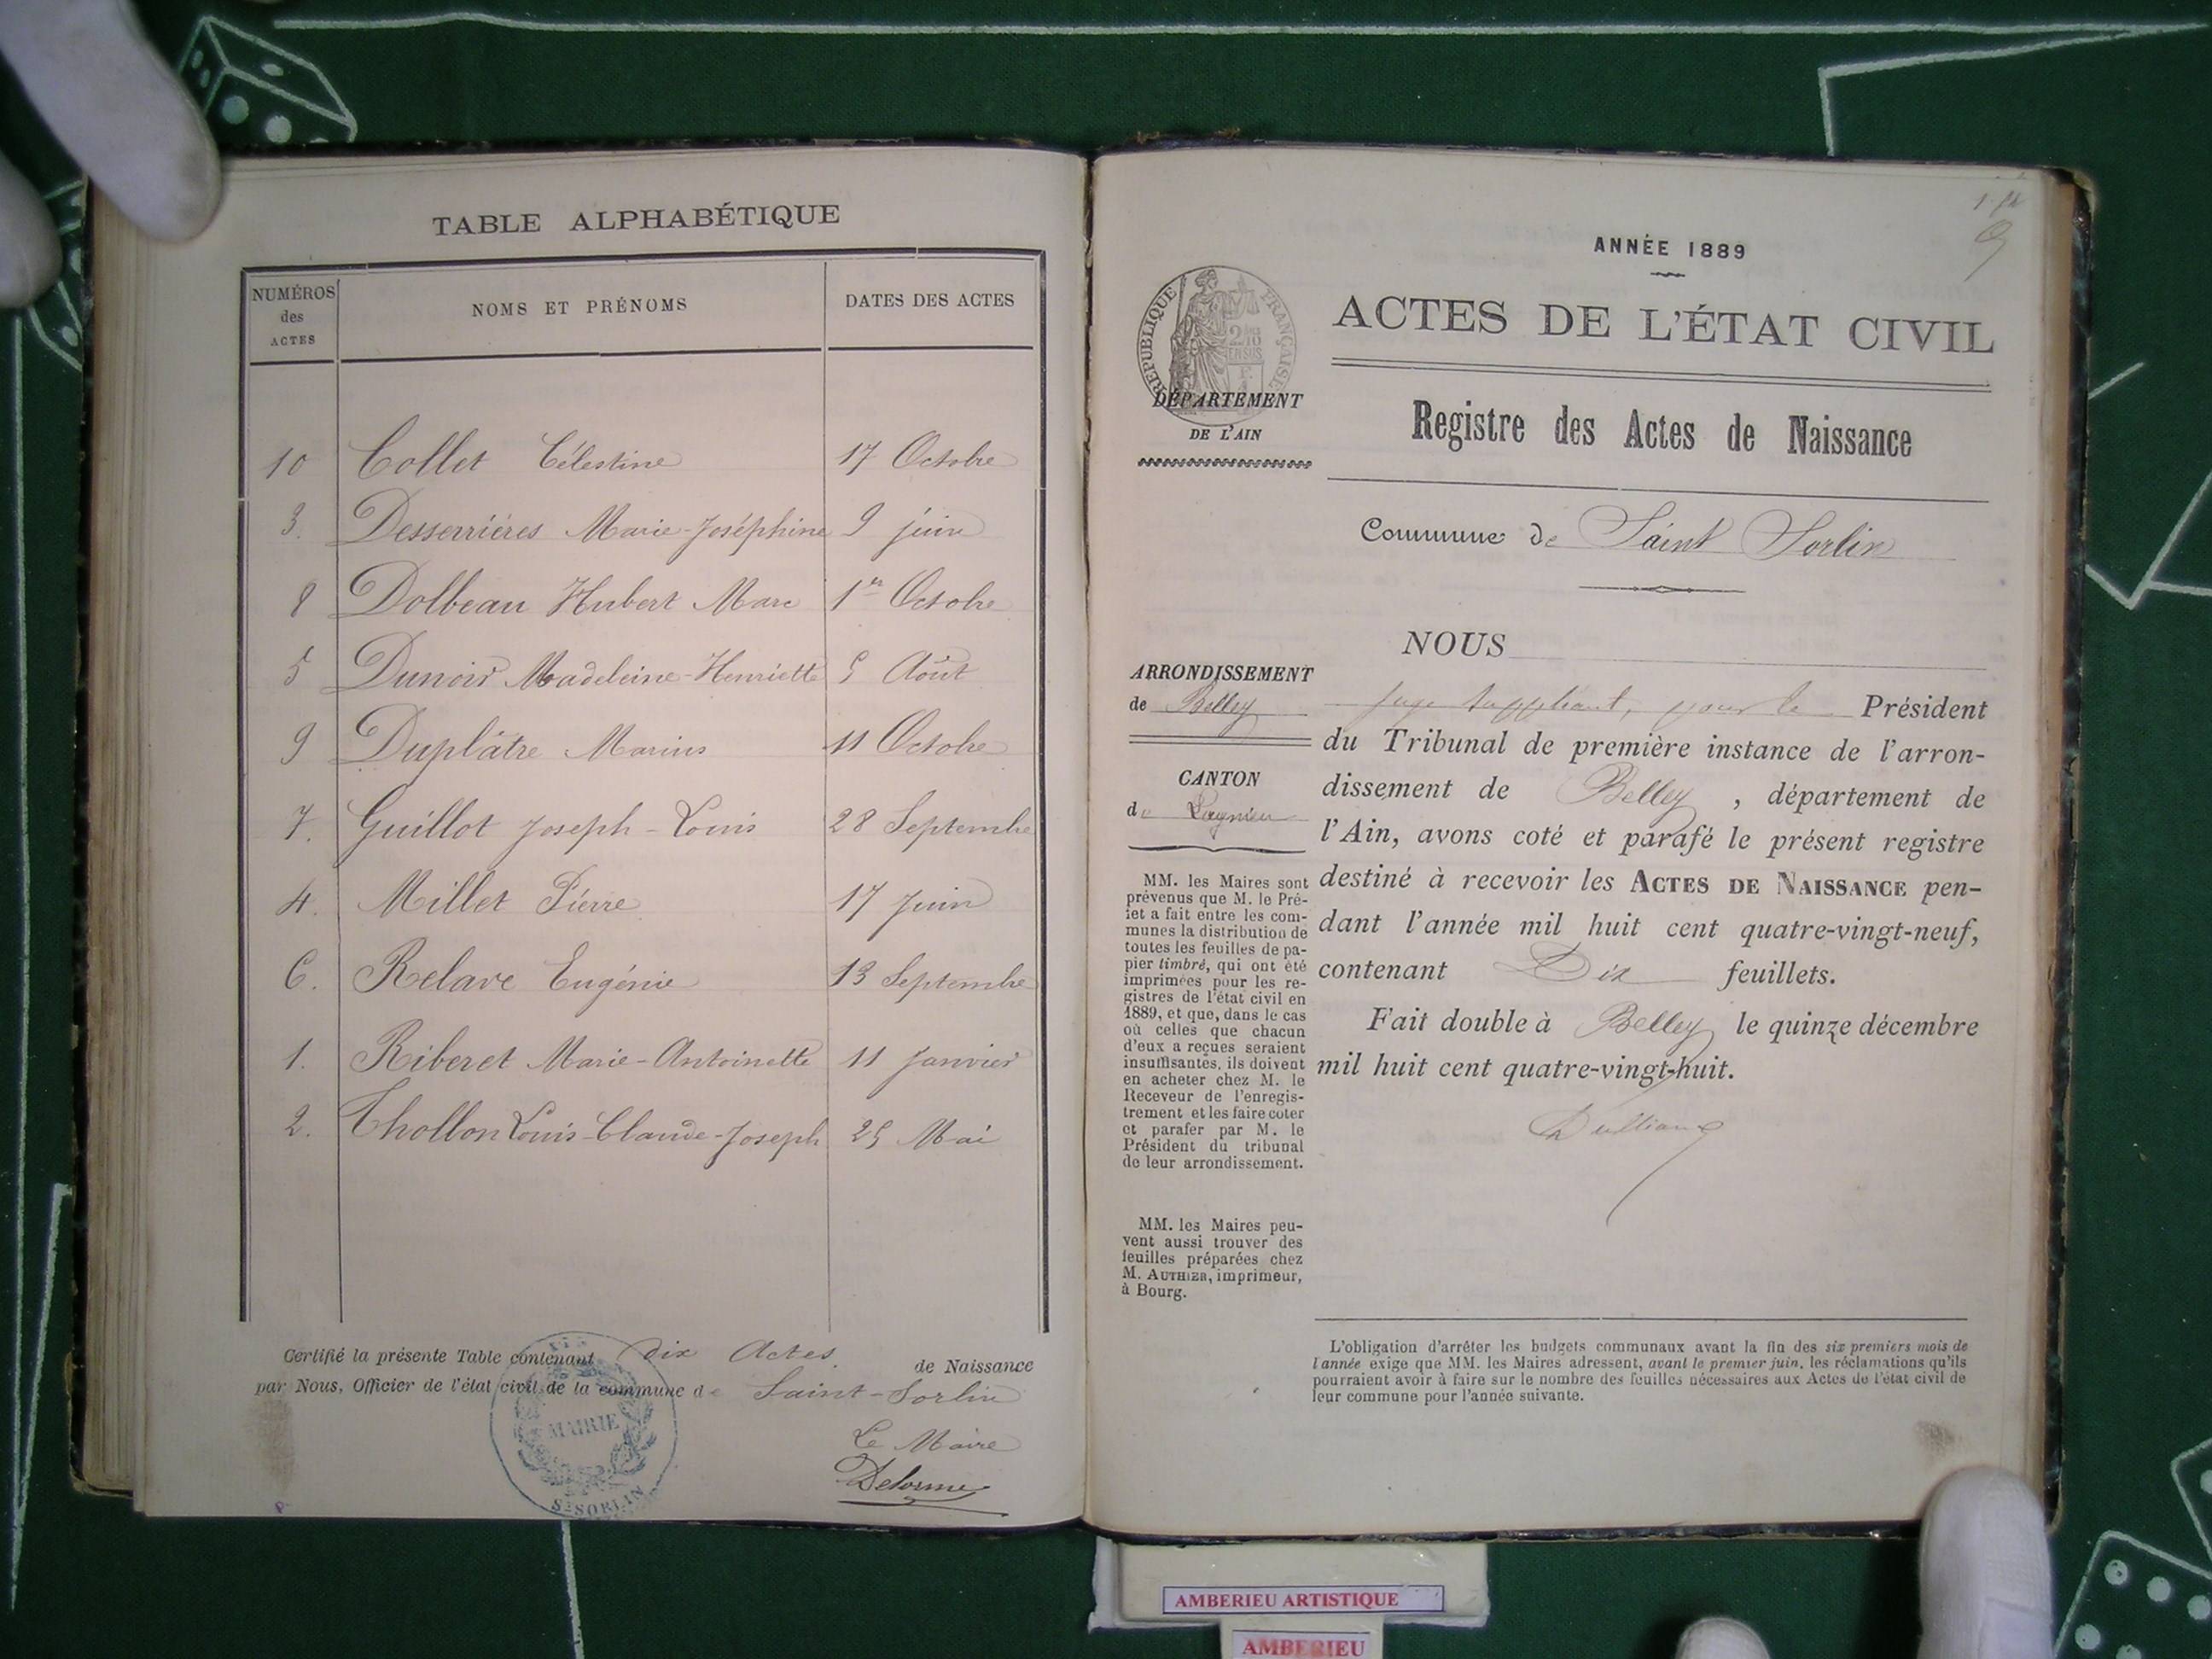 TABLE ALPHABÉTIQUE
NUMÉROS des ACTES
NOMS ET PRÉNOMS
DATES DES ACTES
10 Collet Célestine 17 Octobre
3. Desserrières Marie-Joséphine 9 juin
8 Dolbeau Hubert Marc 1er Octobre
5 Dunoir Madeleine-Henriette 5 Août
9 Duplâtre Marius 11 Octobre
7. Guillot Joseph-Louis 28 Septembre
4. Millet Pierre 17 Juin
6. Relave Eugénie 13 Septembre
1. Riberet Marie-Antoinette 11 Janvier
2. Thollon Louis-Claude-Joseph 25 Mai
Certifié la présente Table contenant dix Actes de Naissance
par Nous, Officier de l'état civil de la commune de Saint-Sorlin
MAIRIE
St SORLIN
Le Maire
Delorme
ANNÉE 1889
RÉPUBLIQUE FRANÇAISE
ACTES DE L'ÉTAT CIVIL
DÉPARTEMENT
DE L'AIN
Registre des Actes de Naissance
Commune de Saint Sorlin
NOUS
ARRONDISSEMENT
de Belley
CANTON
de Lagnieu
juge suppléant, pour le Président
du Tribunal de première instance de l'arron-
dissement de Belley, département de
l'Ain, avons coté et parafé le présent registre
destiné à recevoir les ACTES DE NAISSANCE pen-
dant l'année mil huit cent quatre-vingt-neuf,
contenant Dix feuillets.
Fait double à Belley le quinze décembre
mil huit cent quatre-vingt-huit.
MM. les Maires sont
prévenus que M. le Pré-
fet a fait entre les com-
munes la distribution de
toutes les feuilles de pa-
pier timbré, qui ont été
imprimées pour les re-
gistres de l'état civil en
1889, et que, dans le cas
où celles que chacun
d'eux a reçues seraient
insuffisantes, ils doivent
en acheter chez M. le
Receveur de l'enregis-
trement et les faire coter
et parafer par M. le
Président du tribunal
de leur arrondissement.
MM. les Maires peu-
vent aussi trouver des
feuilles préparées chez
M. AUTHIER, imprimeur,
à Bourg.
L'obligation d'arrêter les budgets communaux avant la fin des six premiers mois de
l'année exige que MM. les Maires adressent, avant le premier juin, les réclamations qu'ils
pourraient avoir à faire sur le nombre des feuilles nécessaires aux Actes de l'état civil de
leur commune pour l'année suivante.
AMBERIEU ARTISTIQUE
AMBERIEU